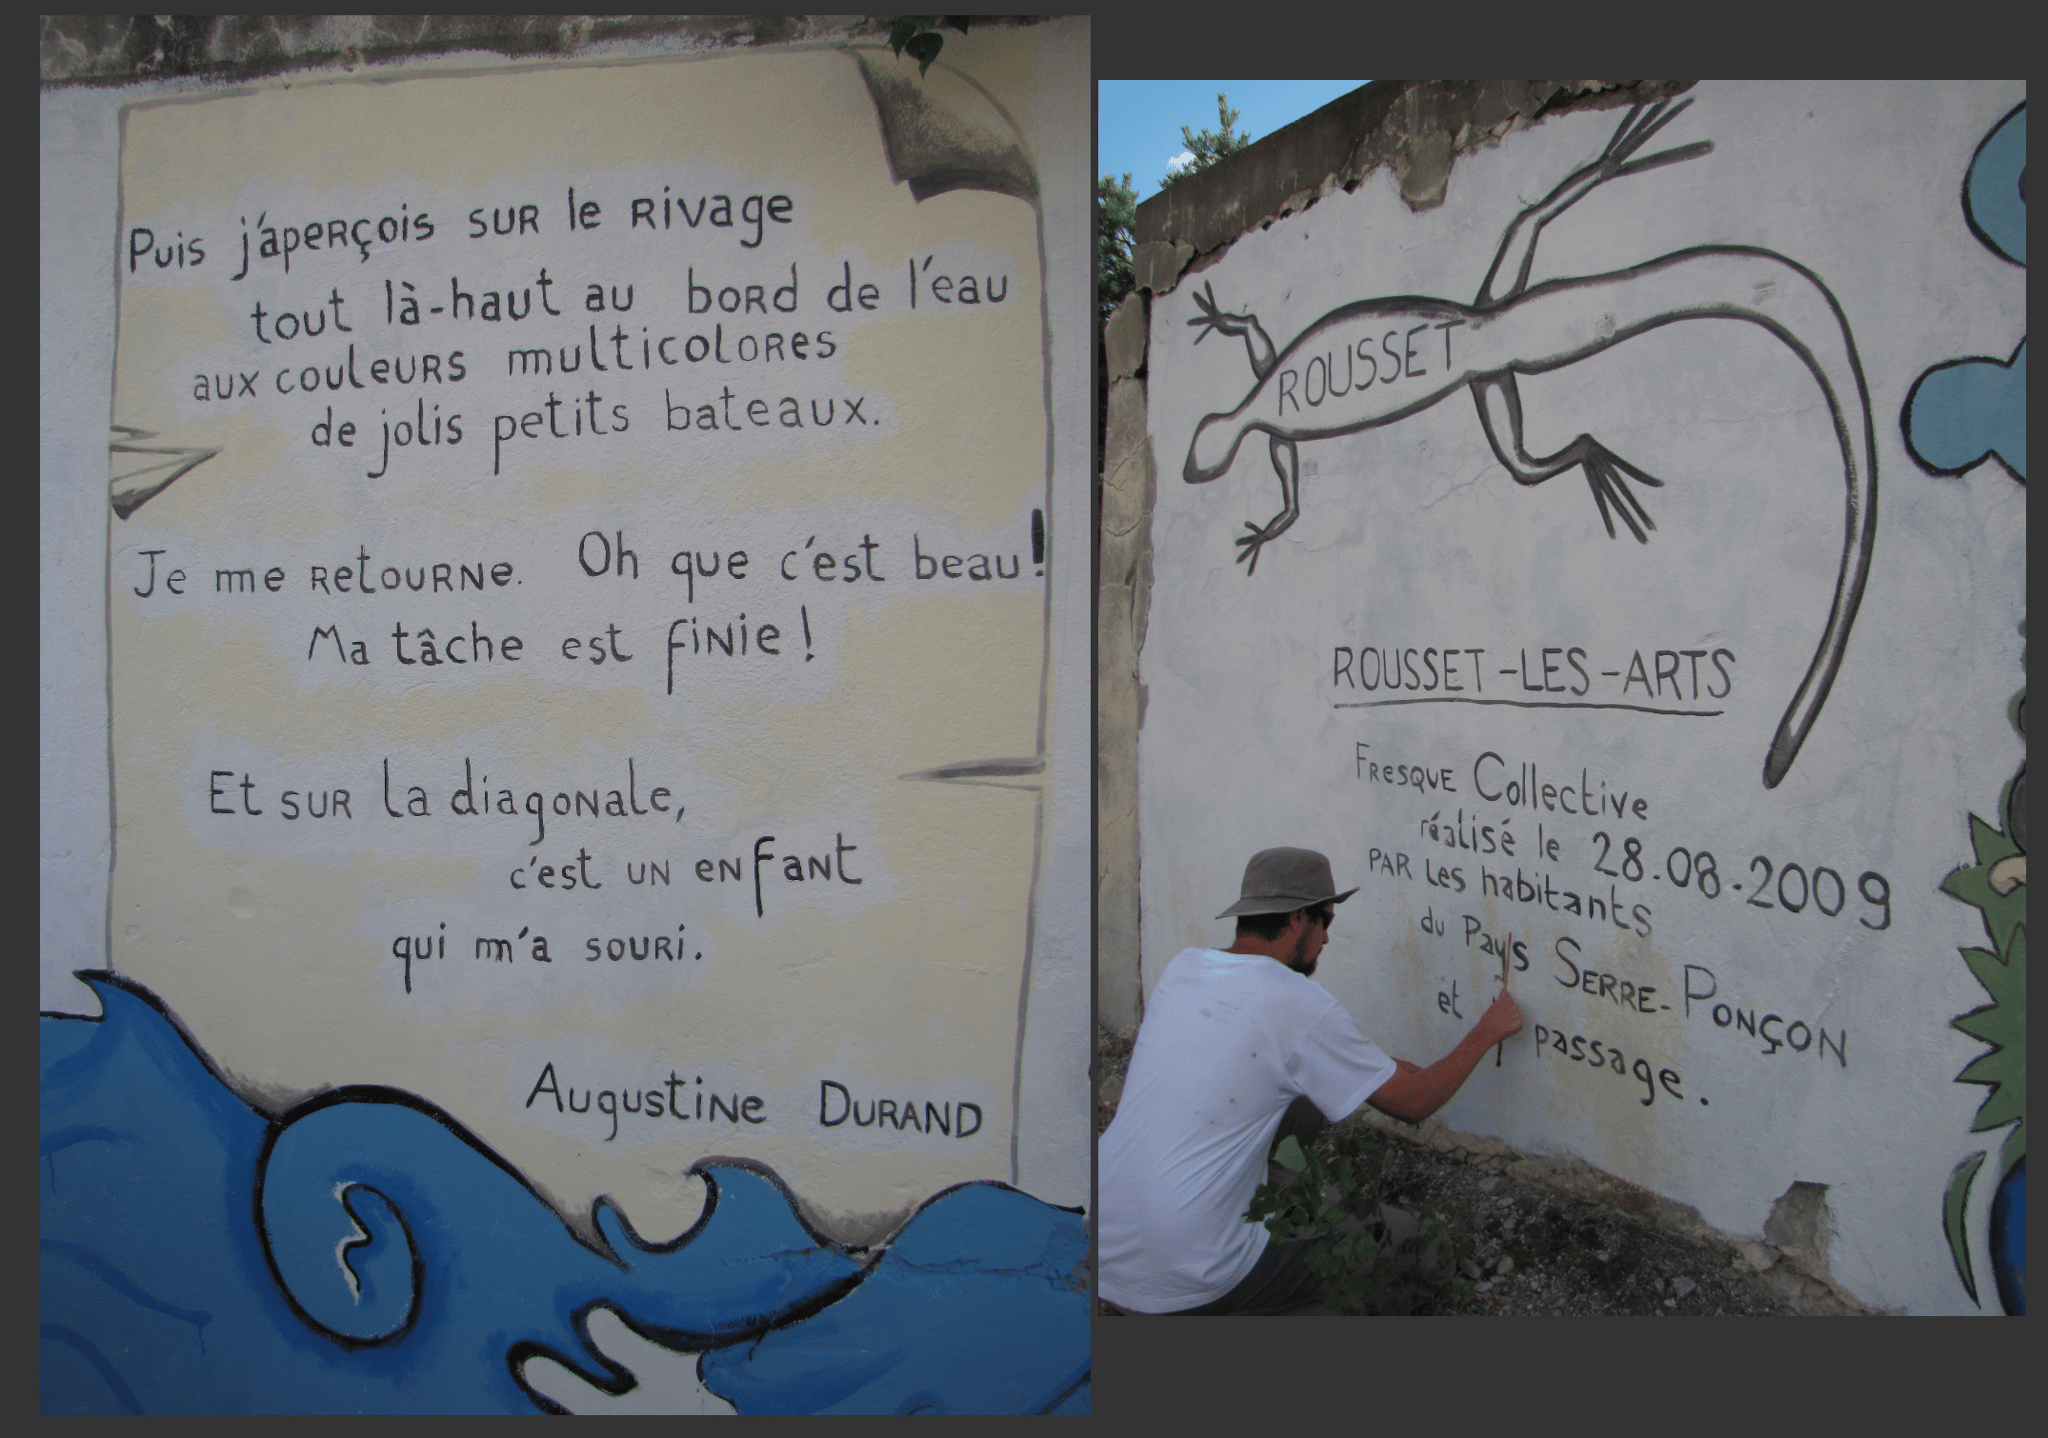 Puis j'aperçois sur le rivage
tout là-haut au bord de l'eau
aux couleurs multicolores
de jolis petits bateaux.
Je me retourne. Oh que c'est beau!
Ma tâche est finie!
Et sur la diagonale,
c'est un enfant
qui m'a souri.
Augustine Durand
ROUSSET
ROUSSET-LES-ARTS
Fresque Collective
réalisé le 28.08.2009
par les habitants
du Pays Serre-Ponçon
et passage.